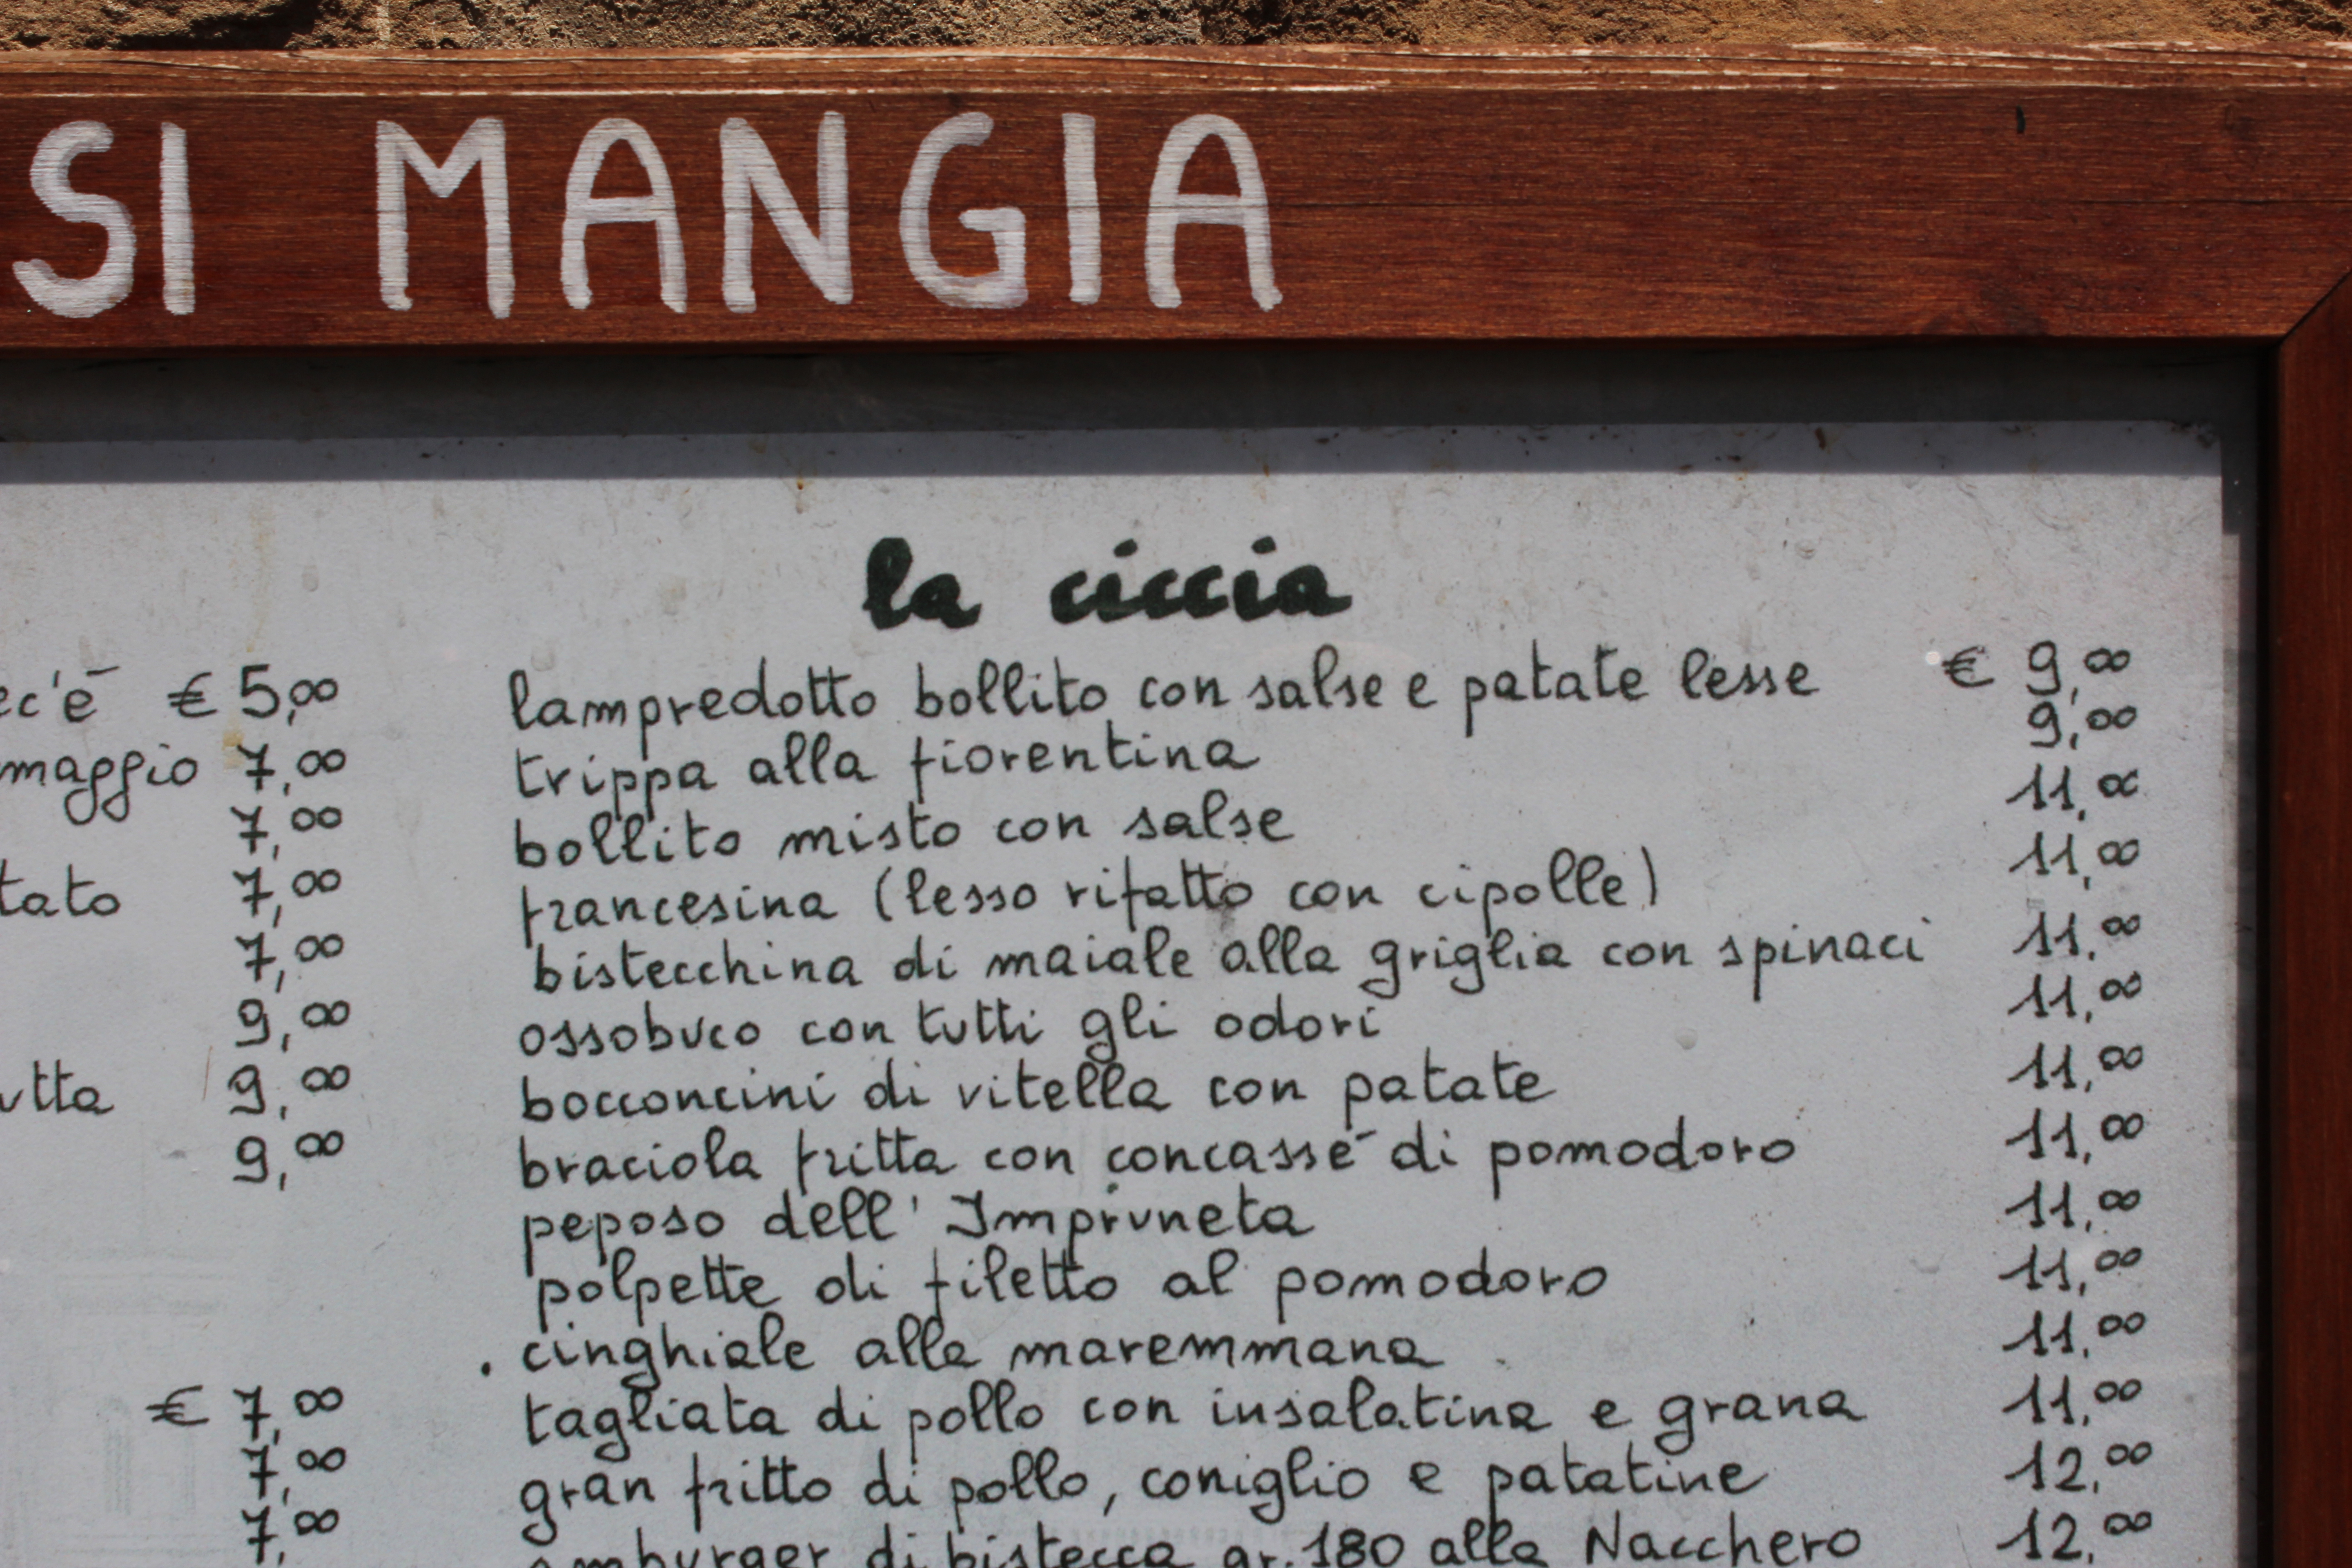 SI MANGIA
ec'è € 5,00
maggio 7,00
7,00
tato 7,00
7,00
9,00
utta 9,00
9,00
€ 7,00
7,00
7,00
la ciccia
lampredotto bollito con salse e patate lesse € 9,00
trippa alla fiorentina 9,00
bollito misto con salse 11,00
francesina (lesso rifatto con cipolle) 11,00
bistecchina di maiale alla griglia con spinaci 11,00
ossobuco con tutti gli odori 11,00
bocconcini di vitella con patate 11,00
braciola fritta con concassé di pomodoro 11,00
peposo dell'Impruneta 11,00
polpette di filetto al pomodoro 11,00
cinghiale alla maremmana 11,00
tagliata di pollo con insalatina e grana 11,00
gran fritto di pollo, coniglio e patatine 12,00
amburger di bistecca gr. 180 alla Nacchero 12,00